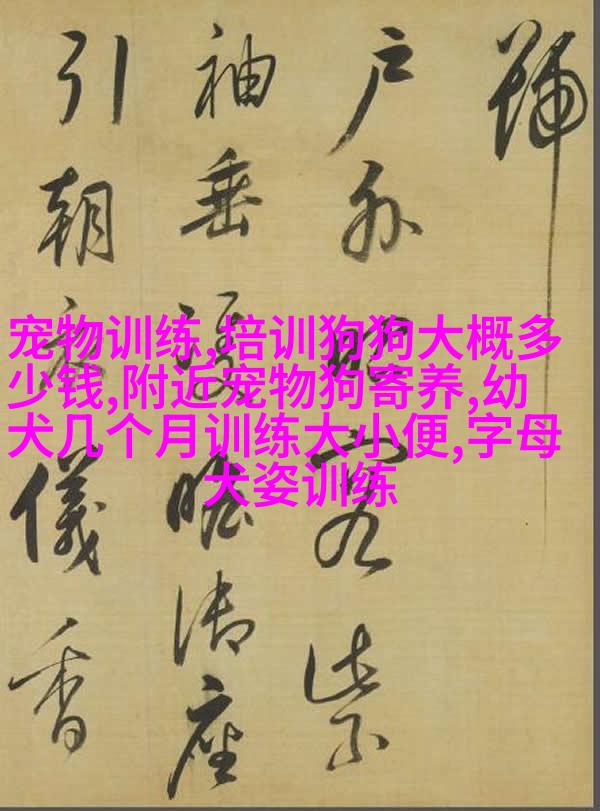 宠物训练,培训狗狗大概多
少钱,附近宠物狗寄养,幼
犬几个月训练大小便,字母
犬姿训练
號
戶外昭容紫
袖垂雙瞻御座
引朝儀香